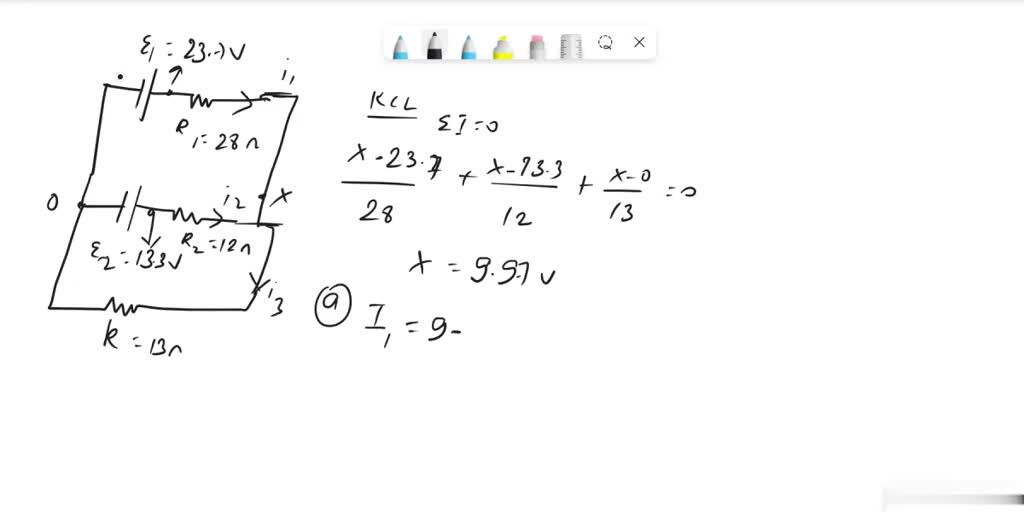 ε₁ = 23.7 V
i₁
R₁ = 28 Ω
0
i₂
x
R₂ = 12 Ω
ε₂ = 13.3 V
i₃
R = 13 Ω
KCL
ΣI = 0
x - 23.7 / 28 + x - 13.3 / 12 + x - 0 / 13 = 0
x = 9.97 V
(a) I₁ = 9-